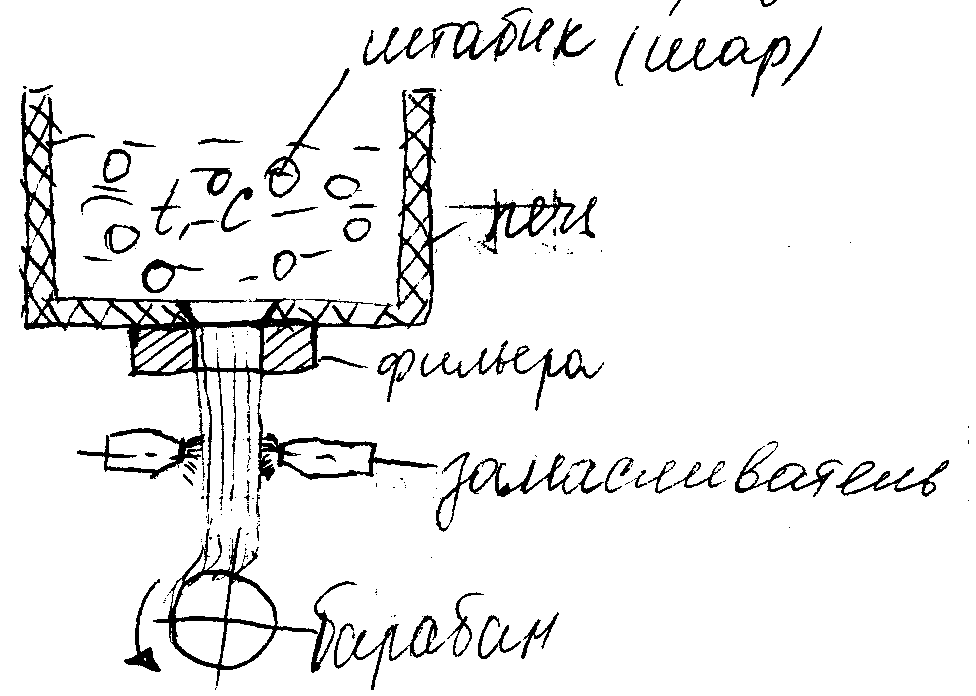 штабик (шар)
t, °C
печь
фильера
замасливатель
барабан